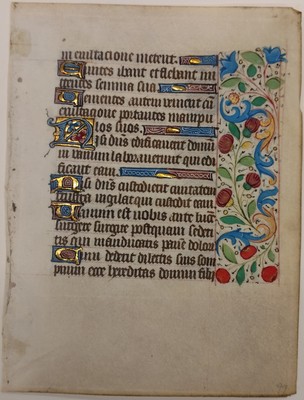 in exultacione metent.
Euntes ibant et flebant mi
ttentes semina sua
Uenientes autem uenient cū
exultacione portantes manipu
los suos.
Nisi dñs edificauerit domū
in uanum laborauerunt qui edi
ficant eam.
Nisi dñs custodierit ciuitatem
frustra uigilat qui custodit eam
Uanum est uobis ante lucē
surgere surgite postquam sederi
tis qui manducatis panē dolor
Cum dederit dilectis suis som
pnum ecce hereditas domini filii